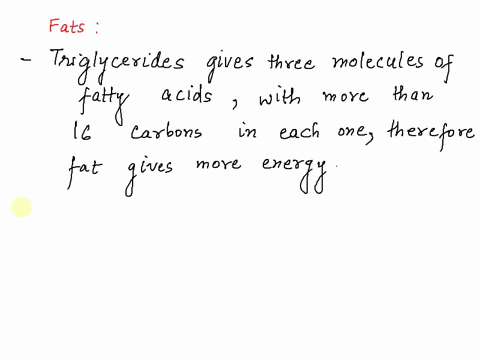 Fats :
- Triglycerides gives three molecules of
fatty acids, with more than
16 carbons in each one, therefore
fat gives more energy.